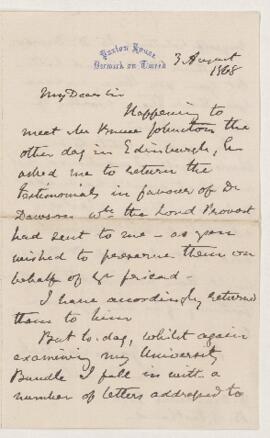 Paxton House,
Berwick on Tweed
3 August
1868
My Dear Sir
Happening to
meet Mr Bruce Johnston the
other day in Edinburgh, he
asked me to return the
testimonials in favour of Dr
Dawson wh. the Lord Provost
had sent to me – as you
wished to preserve them on
behalf of yr friend –
I have accordingly returned
them to him
But to-day, whilst again
examining my University
Bundle I fell in with a
number of letters addressed to